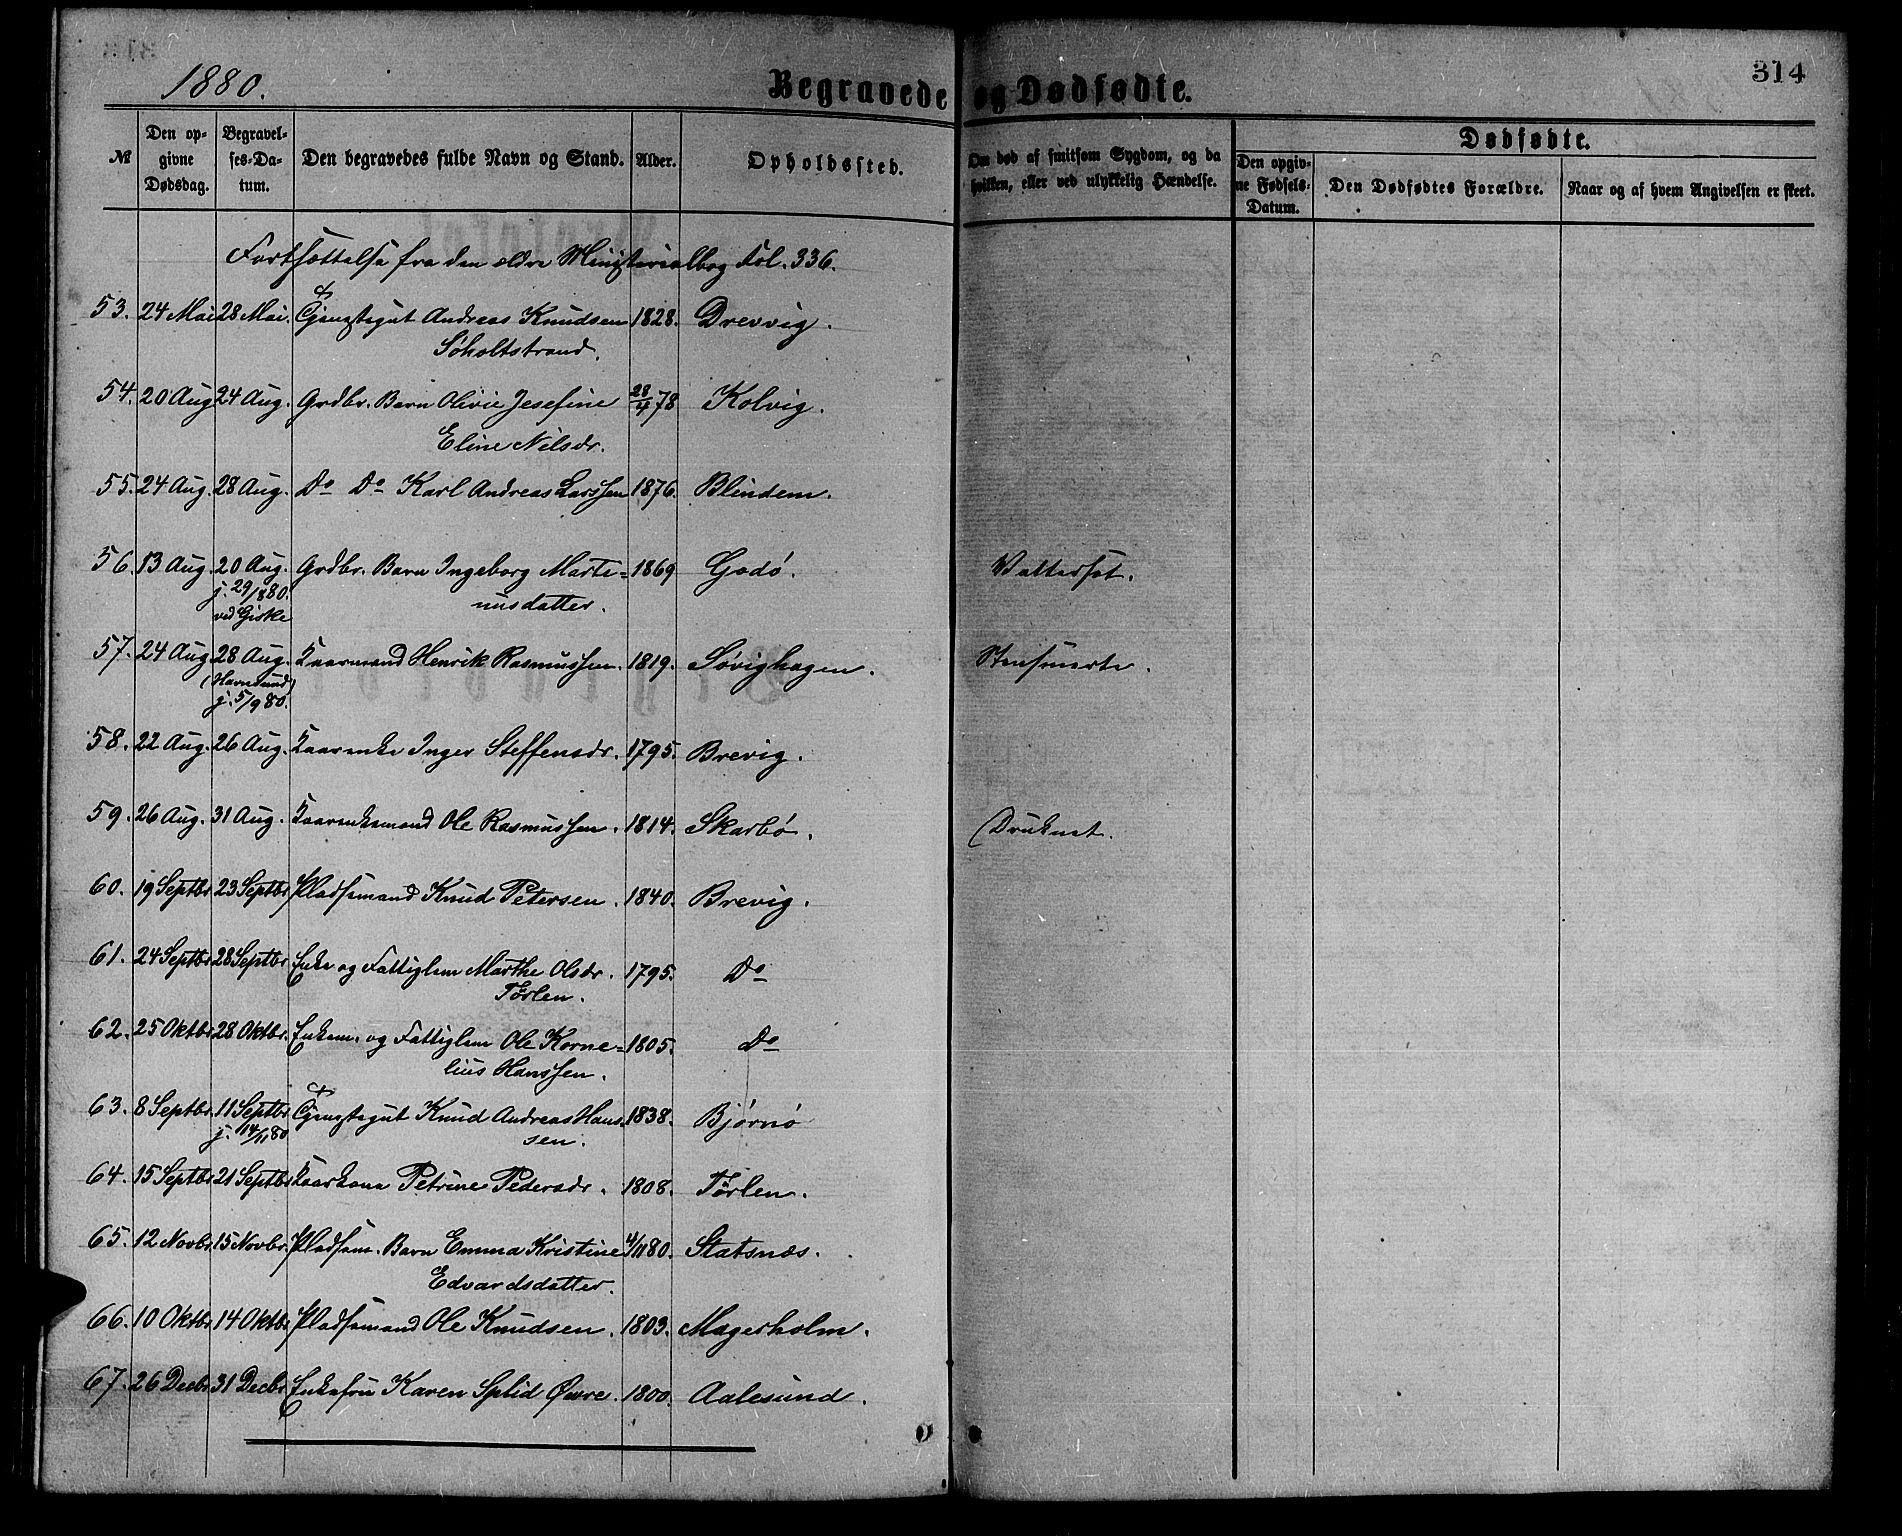 1880.
Begravede og Dødfødte.
314
№
Den opgivne Dødsdag.
Begravelses-Datum.
Den begravedes fulde Navn og Stand.
Alder.
Opholdssted.
Om død af smitsom Sygdom, og da hvilken, eller ved ulykkelig Hændelse.
Dødfødte.
Den opgivne Fødsels-Datum.
Den Dødfødtes Forældre.
Naar og af hvem Angivelsen er skeet.
Fortsættelse fra den ældre Ministerialbog Fol. 336.
53. 24 Mai 28 Mai. Tjenestegut Andreas Knudsen 1828. Drevvig.
Søholtstrand.
54. 20 Aug 24 Aug. Grdbr. Barn Olivie Josefine 28/4 78 Kolvig.
Eline Nilsdr.
55. 24 Aug. 28 Aug. Do Do Karl Andreas Larssen 1876. Blindem.
56. 13 Aug. 20 Aug. Grdbr. Barn Ingeborg Marte= 1869 Godø. Vattersot.
j. 29/8 80. nusdatter.
ved Giske
57. 24 Aug 28 Aug. Kaarmand Henrik Rasmussen. 1819. Søvighagen. Stensmerte.
(Havnsund)
j. 5/9 80.
58. 22 Aug. 26 Aug. Kaarenke Inger Steffensdr. 1795. Brevig.
59. 26 Aug. 31 Aug. Kaarenkemand Ole Rasmussen. 1814. Skarbø. Druknet.
60. 19 Septbr 23 Septbr Pladsemand Knud Petersen. 1840. Brevig.
61. 24 Septbr 28 Septbr Enke og Fattiglem Marthe Olsdr. 1795. Do
Tørlen.
62. 25 Oktbr 28 Oktbr. Enkem. og Fattiglem Ole Korne= 1805. Do
lius Hanssen.
63. 8 Septbr. 11 Septbr Tjenestegut Knud Andreas Hans- 1838. Bjørnø
j. 14/11 80 sen.
64. 15 Septbr 21 Septbr Kaarkone Petrine Pedersdr. 1808. Tørlen.
65. 12 Novbr. 15 Novbr. Pladsem. Barn Emma Kristine 4/11 80. Slatsnæs.
Edvardsdatter.
66. 10 Oktbr 14 Oktbr Pladsemand Ole Knudsen. 1803. Magerholm.
67. 26 Decbr 31 Decbr Enkefru Karen Splid Øwre. 1800. Aalesund.